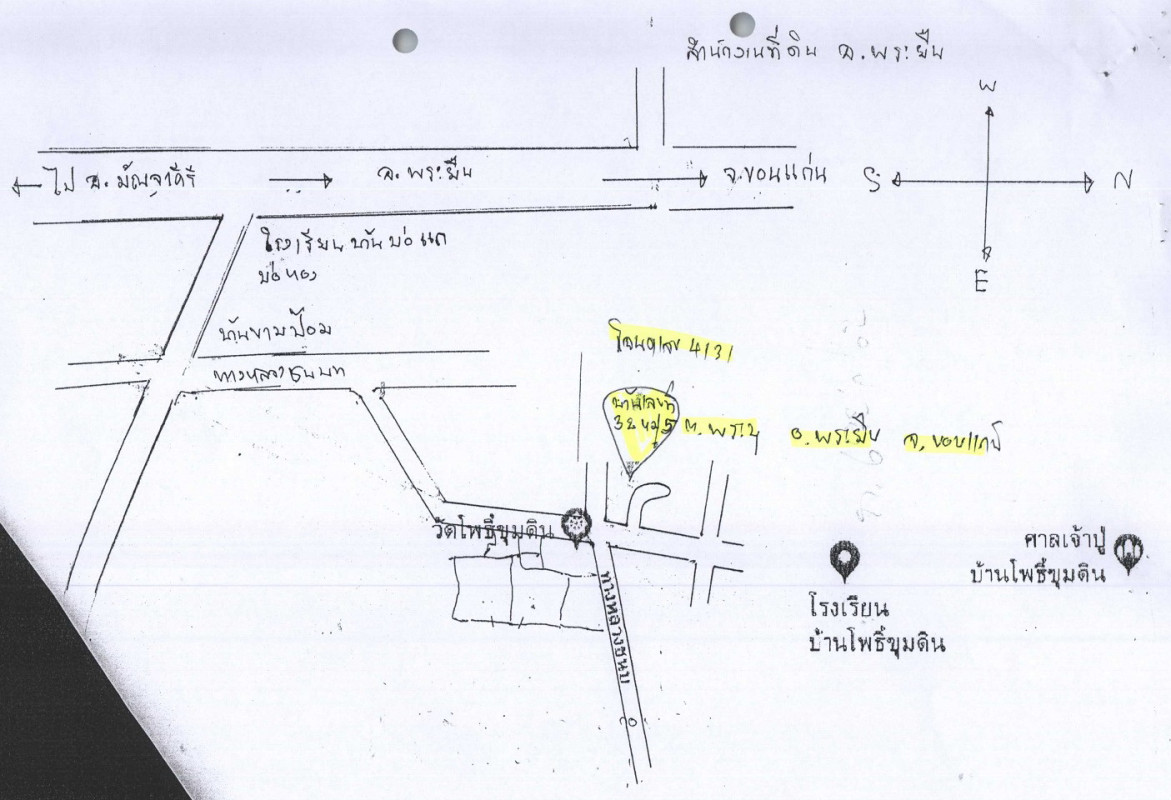 สำนักงานที่ดิน อ.พระยืน
W
ไป อ.มัญจาคีรี
อ.พระยืน
จ.ขอนแก่น
S
N
E
โรงเรียนบ้านบ่อแก
บ่อทอง
บ้านขามป้อม
ทางหลวงชนบท
โฉนดเลข 4131
บ้านเลขที่
32 ม/5 ต.พระบุ อ.พระยืน จ.ขอนแก่น
วัดโพธิ์ขุมดิน
ศาลเจ้าปู่
บ้านโพธิ์ขุมดิน
ทางหลวงชนบ
โรงเรียน
บ้านโพธิ์ขุมดิน